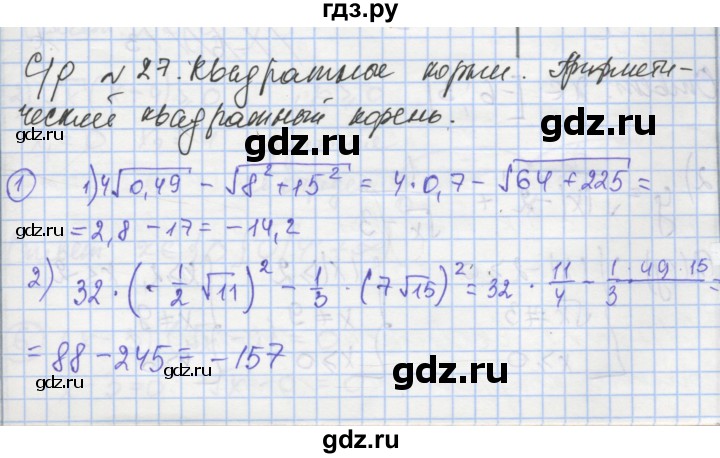 гдз.ру
С/р №27. Квадратные корни. Арифмети-
ческий квадратный корень.
gdz.ru gdz.ru gdz.ru
① 1) 4√0,49 − √8²+15² = 4·0,7 − √64+225 =
= 2,8 − 17 = −14,2
gdz.ru gdz.ru
2) 32·(−1/2 √11)² − 1/3·(7√15)² = 32·11/4 − 1/3·49·15 =
= 88 − 245 = −157
gdz.ru gdz.ru gdz.ru
gdz.ru